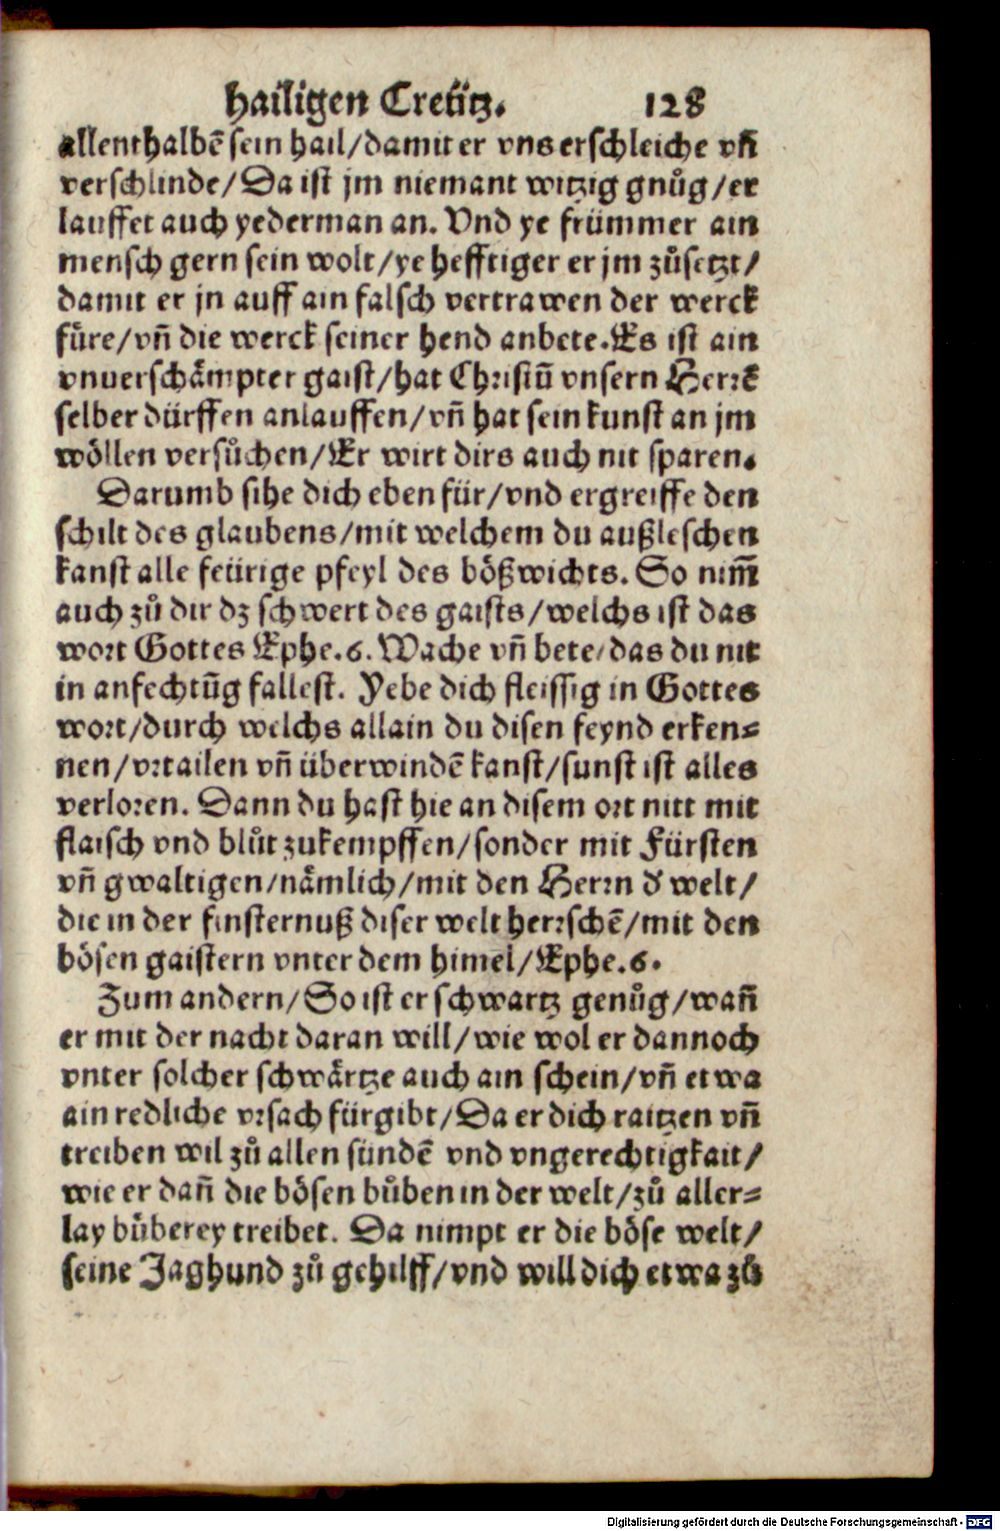 hailigen Creütz. 128
allenthalbē sein hail/damit er vns erschleiche vñ
verschlinde/Da ist jm niemant witzig gnůg/er
lauffet auch yederman an. Vnd ye frümmer ain
mensch gern sein wolt/ye hefftiger er jm zůsetzt/
damit er jn auff ain falsch vertrawen der werck
füre/vñ die werck seiner hend anbete. Es ist ain
vnuerschämpter gaist/hat Christū vnsern Herrē
selber dürffen anlauffen/vñ hat sein kunst an jm
wöllen versůchen/Er wirt dirs auch nit sparen.
Darumb sihe dich eben für/vnd ergreiffe den
schilt des glaubens/mit welchem du außleschen
kanst alle feürige pfeyl des bößwichts. So nim̃
auch zů dir dz schwert des gaists/welchs ist das
wort Gottes Ephe.6. Wache vñ bete/das du nit
in anfechtūg fallest. Yebe dich fleissig in Gottes
wort/durch welchs allain du disen feynd erken⸗
nen/vrtailen vñ überwindē kanst/sunst ist alles
verloren. Dann du hast hie an disem ort nitt mit
flaisch vnd blůt zukempffen/sonder mit Fürsten
vñ gwaltigen/nämlich/mit den Herrn d' welt/
die in der finsternuß diser welt herrschē/mit den
bösen gaistern vnter dem himel/Ephe.6.
Zum andern/So ist er schwartz genůg/wañ
er mit der nacht daran will/wie wol er dannoch
vnter solcher schwärtze auch ain schein/vñ etwa
ain redliche vrsach fürgibt/Da er dich raitzen vñ
treiben wil zů allen sündē vnd vngerechtigkait/
wie er dañ die bösen bůben in der welt/zů aller⸗
lay bůberey treibet. Da nimpt er die böse welt/
seine Jaghund zů gehilff/vnd will dich etwa zů
Digitalisierung gefördert durch die Deutsche Forschungsgemeinschaft - DFG